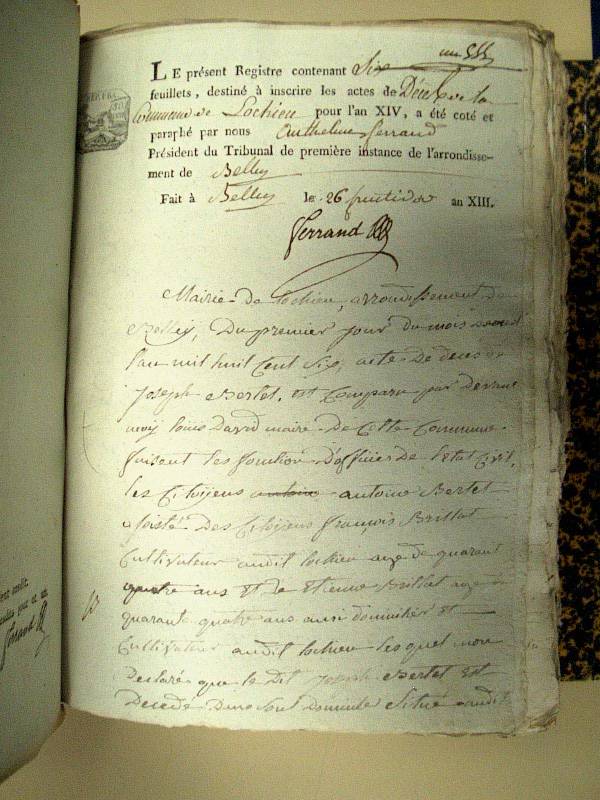 LE présent Registre contenant Six
feuillets, destiné à inscrire les actes de Décès de la
Commune de Lochieu pour l'an XIV, a été coté et
paraphé par nous Anthelme Ferrand
Président du Tribunal de première instance de l'arrondisse-
ment de Belley
Fait à Belley le 26 fructidor an XIII.
Ferrand
Mairie de Lochieu, arrondissement de
Belley, Du premier jour du mois
l'an mil huit Cent Six, acte de deces de
Joseph Bertet, est Comparu par devant
moy louis David maire De Cette Commune
faisent les fonction D'officier De l'état Civil,
les Citoyens antoine Bertet
assisté Des Citoyens françois Brillat
Cultivateur audit lochieu age de quarant
quatre ans et de Etienne Brillat age
quarante quatre ans aussi domicilié et
Cultivateur audit lochieu lesquel mon
Declaré que le dit Joseph Bertet est
Decedé Dans Son domicile Situé audit
Ferrand